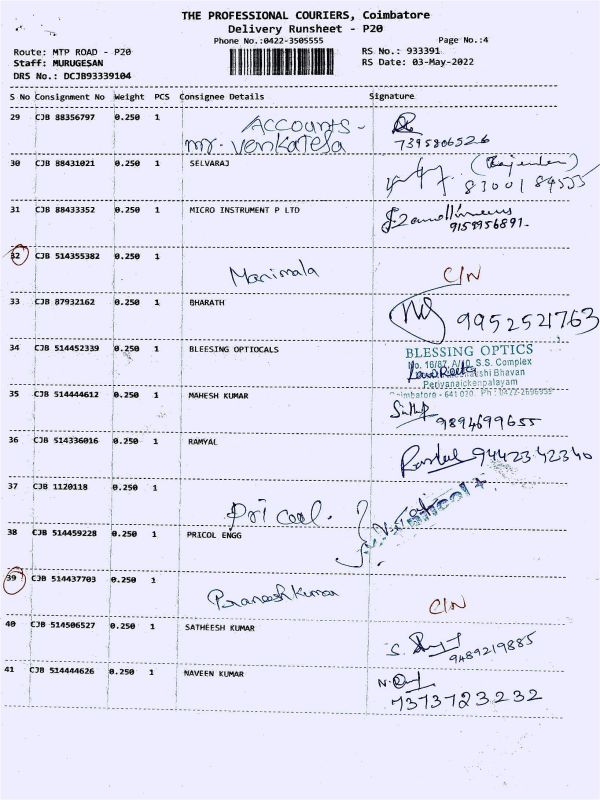 THE PROFESSIONAL COURIERS, Coimbatore
Delivery Runsheet - P20
Phone No.:0422-3505555 Page No.:4
Route: MTP ROAD - P20 RS No.: 933391
Staff: MURUGESAN RS Date: 03-May-2022
DRS No.: DCJB93339104
S No Consignment No Weight PCS Consignee Details Signature
29 CJB 88356797 0.250 1 Accounts-
mr. venkatesa 7395806526
30 CJB 88431021 0.250 1 SELVARAJ
83001 84555
31 CJB 88433352 0.250 1 MICRO INSTRUMENT P LTD
9159956891.
32 CJB 514355382 0.250 1
Manimala C/N
33 CJB 87932162 0.250 1 BHARATH
9952521763
34 CJB 514452339 0.250 1 BLEESING OPTIOCALS BLESSING OPTICS
No. 16/87, A/10, S.S. Complex
Bhavan
Periyanaickenpalayam
Coimbatore - 641 020. Ph : 0422-2696955
35 CJB 514444612 0.250 1 MAHESH KUMAR
9894699655
36 CJB 514336016 0.250 1 RAMYAL
9442342340
37 CJB 1120118 0.250 1
Pri cool.
38 CJB 514459228 0.250 1 PRICOL ENGG
39 CJB 514437703 0.250 1
Praneesh kumar C/N
40 CJB 514506527 0.250 1 SATHEESH KUMAR S.
9489219885
41 CJB 514444626 0.250 1 NAVEEN KUMAR N.
7373723232